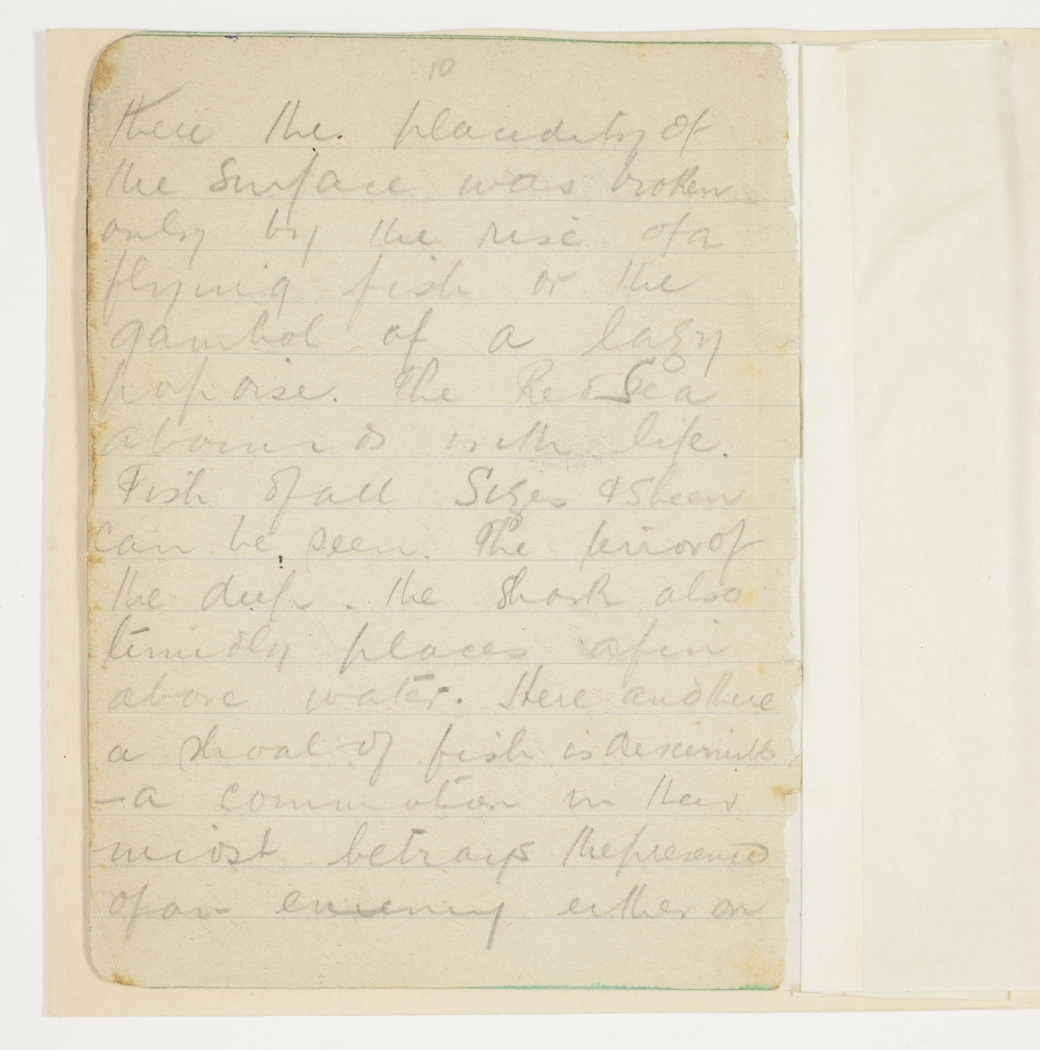 10
there the placidity of
the Surface was broken
only by the rise of a
flying fish or the
gambol of a lazy
popoise. The Red Sea
abounds with life.
Fish of all Sizes & Sheen
can be seen. The terror of
the deep - the Shark also
timidly places a fin
above water. Here and there
a shoal of fish is descernible,
- a commotion in their
midst betrays the presence
of an enemy either on